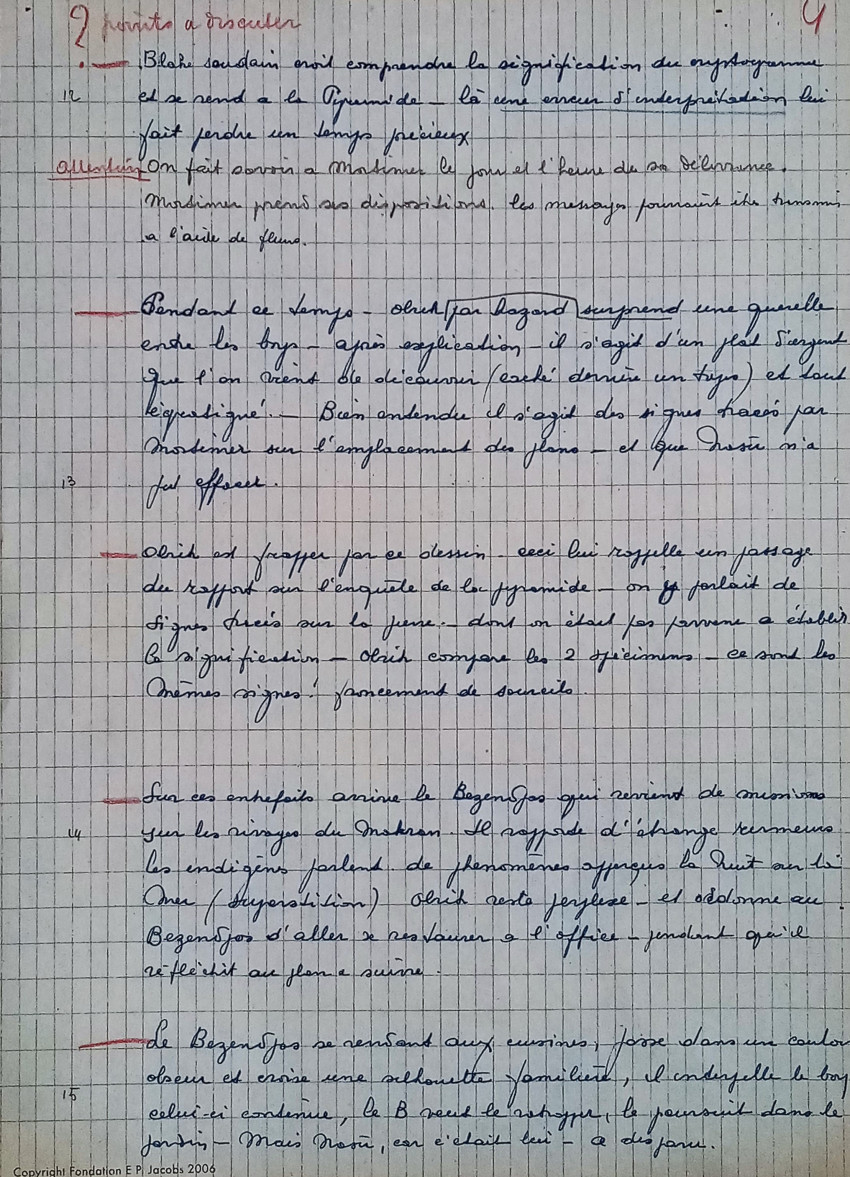 ? points a discuter
4
— Blake soudain croit comprendre la signification du cryptogramme
12 et se rend a la Pyramide – là une erreur d'interprétation lui
fait perdre un temps précieux
attention On fait savoir a Mortimer le jour et l'heure de sa délivrance.
Mortimer prend ses dispositions. les messages pourraient être transmis
a l'aide de fleurs.
— Pendant ce temps – Olrik par hazard surprend une querelle
entre les boys – après explication – il s'agit d'un plat d'argent
que l'on vient de découvrir (caché derrière un tapis) et tout
égratigné. – Bien entendu il s'agit des signes tracés par
Mortimer sur l'emplacement des plans – et que Nasir n'a
pu effacer.
13
— Olrik est frapper par ce dessin – ceci lui rappelle un passage
du rapport sur l'enquête de la pyramide – on y parlait de
signes tracés sur la pierre – dont on était pas parvenu a établir
la signification – Olrik compare les 2 spécimens – ce sont les
mêmes signes! froncement de sourcils.
— Sur ces entrefaits arrive le Bezendjas qui revient de mission
14 sur les rivages du Makran. Il rapporte d'étrange rumeurs
les indigèns parlent de phénomènes apperçus la Nuit sur la
Mer (superstition) Olrik reste perplexe – et ordonne au
Bezendjas d'aller se restaurer a l'office – pendant qu'il
réfléchit au plan a suivre.
— Le Bezendjas se rendant aux cuisines, passe dans un couloir
obscur et croise une silhouette familière, il interpelle le boy
15 celui-ci continue, le B veut le rattrapper, le poursuit dans le
jardin – Mais Nasir, car c'était lui – a disparu.
Copyright Fondation E P. Jacobs 2006